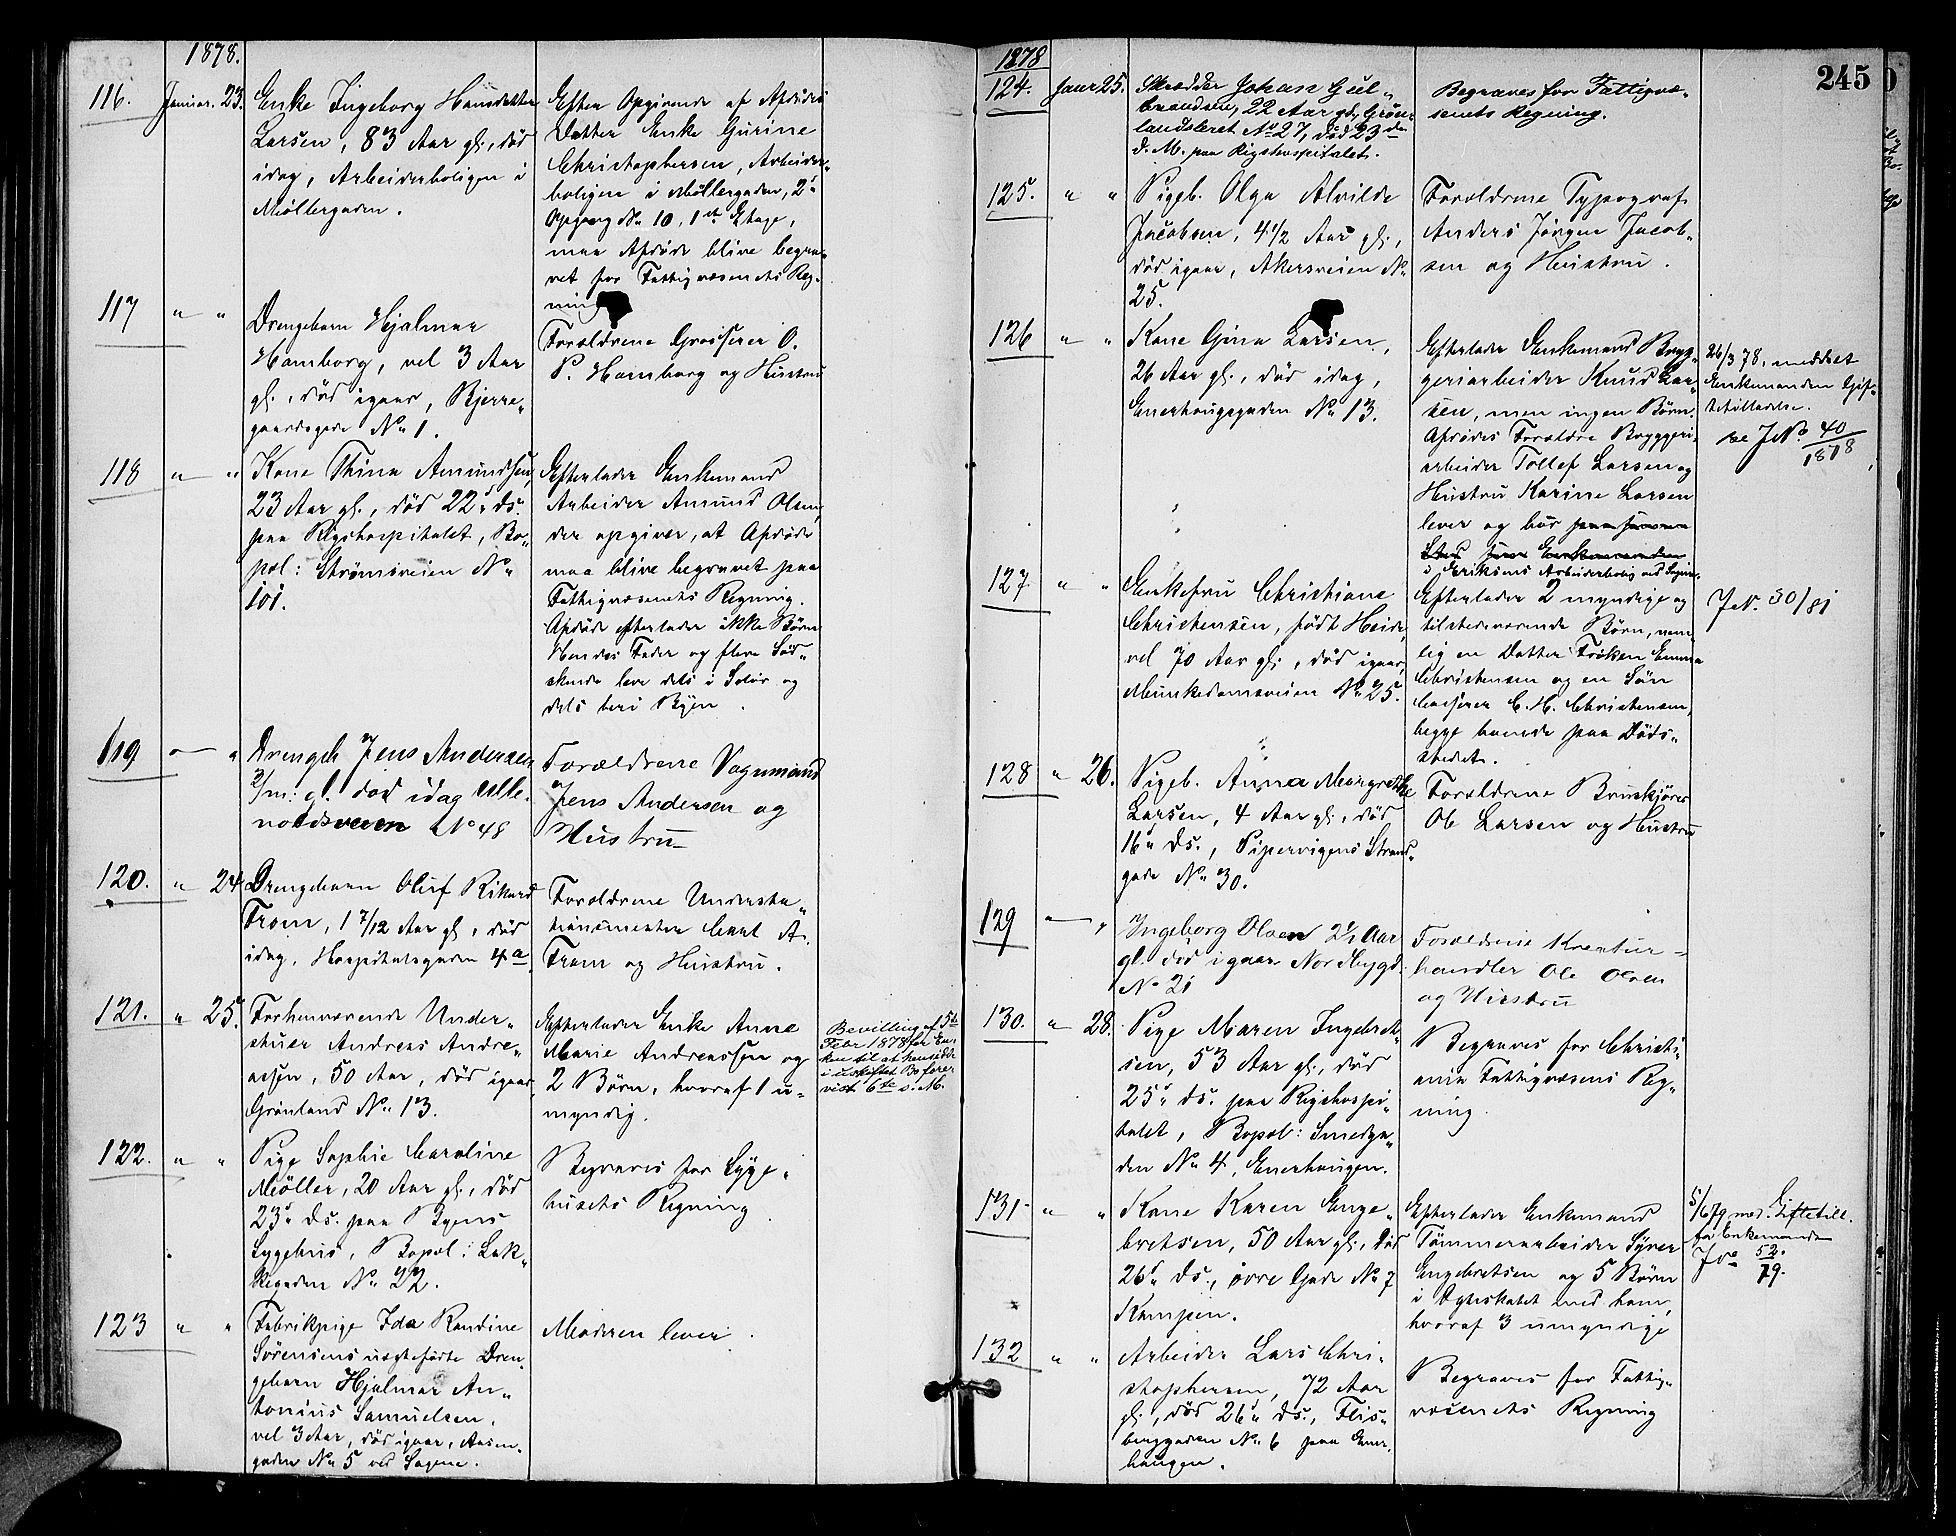 1878.
116. Januar. 23. Enke Ingeborg Hansdatter
Larsen, 83 Aar gl., død
idag, Arbeiderboligen i
Møllergaden.
Efter Opgivende af Afdødes
Datter Enke Gurine
Christophersen, Arbeider-
boligen i Møllergaden, 2n
Opgang No 10, 1ste Etage,
maa Afdøde blive begra-
vet for Fattigvæsenets Reg-
ning
117 " " Drengebarn Hjalmar
Hamborg, vel 3 Aar
gl., død igaar, Bjerre-
gaardsgade No 1.
Forældrene Grosserer O.
P. Hamborg og Hustru
118 " " Kone Thina Amundsen,
23 Aar gl., død 22n ds.
paa Rigshospitalet, Bo-
pæl: Strømsveien No
101.
Efterlader Enkemand
Arbeider Amund Olsen,
der opgiver, at Afdøde
maa blive begravet paa
Fattigvæsenets Regning.
Afdøde efterlader ikke Børn
Hendes Fader og flere Sød-
skende leve dels i Solør og
dels her i Byen.
119 — " Drengeb Jens Andersen
3/m: gl. død idag Ulle-
voldsveien No 48
Forældrene Vognmand
Jens Andersen og
Hustru
120. " 24 Drengebarn Oluf Rikard
From, 1 7/12 Aar gl., død
idag, Hospitalsgaden 4a
Forældrene Understa-
tionsmester Carl A.
From og Hustru.
121. " 25. Forhenværende Under-
stuer Andreas Andre-
assen, 50 Aar, død igaar,
Grønland No 13.
Efterlader Enke Anne
Marie Andreassen og
2 Børn, hvoraf 1 u-
myndig.
Bevilling af 5te
Febr 1878 for En-
ken til at hensidde
i uskiftet Bo fore-
vist 6te s. M.
122. " " Pige Sophie Caroline
Møller, 20 Aar gl., død
23n ds. paa Byens
Sygehus, Bopæl: Lak-
kegaden No 22.
Begraves for Syge-
husets Regning
123 " " Fabrikpige Ida Randine
Sørensens uægtefødte Dren-
gebarn Hjalmar An-
tonius Samuelsen,
vel 3 Aar, død igaar, Aasen-
gaden No 5 ved Sagene.
Moderen lever.
245
1878
124. Januar 25. Skrædder Johan Gul-
brandsen, 22 Aar gl., Grøn-
landsleret No 27, død 23de
d. M. paa Rigshospitalet.
Begraves for Fattigvæ-
senets Regning.
125. " " Pigeb. Olga Alvilde
Jacobsen, 4 1/2 Aar gl.,
død igaar, Akersveien No
25.
Forældrene Typograf
Anders Jørgen Jacob-
sen og Hustru.
126 " " Kone Gina Larsen,
26 Aar gl., død idag,
Enerhougsgaden No 13.
Efterlader Enkemand Bryg-
geriarbeider Knud Lar-
sen, men ingen Børn.
Afdødes Forældre Bryggeri-
arbeider Tollef Larsen og
Hustru Karine Larsen
lever og bor paa samme
Sted som Enkemanden
i Eriksens Arbeiderbolig ved Sagene.
26/3 78, meddelt
Enkemanden Gif-
tetilladelse.
se JNo 40/1878
127. " " Enkefru Christiane
Christensen, født Heide,
vel 70 Aar gl., død igaar,
Munkedamsveien No 25.
Efterlader 2 myndige og
tilstedeværende Børn, nem-
lig en Datter Frøken Emma
Christensen og en Søn
Casserer C. H. Christensen,
begge boende paa Døds-
stedet.
JNo. 30/81
128 " 26. Pigeb. Anna Margrethe
Larsen, 4 Aar gl., død
16n ds., Pipervigens Strand-
gade No 30.
Forældrene Bruskjører
Ole Larsen og Hustru
129 — " Ingeborg Olsen 2 1/2 Aar
gl. død igaar Nordbygd:
No 21
Forældrene Kreatur-
handler Ole Olsen
og Hustru
130. " 28. Pige Maren Ingebret-
sen, 53 Aar gl., død
25n ds. paa Rigshospi-
talet, Bopæl: Smedga-
den No 4, Enerhaugen.
Begraves for Christi-
ania Fattigvæsens Reg-
ning.
131. " " Kone Karen Enge-
bretsen, 50 Aar gl., død
26n ds., øvre Gade No 7
Kampen.
Efterlader Enkemand
Tømmerarbeider Syver
Engebretsen og 5 Børn
i Ægteskabet med ham,
hvoraf 3 umyndige
5/6 79 med. Giftetill.
for Enkemanden
JNo 52/79.
132 " " Arbeider Lars Chri-
stophersen, 72 Aar
gl., død 26n ds., Flis-
berggaden No 6 paa Ener-
haugen.
Begraves for Fattig-
væsenets Regning